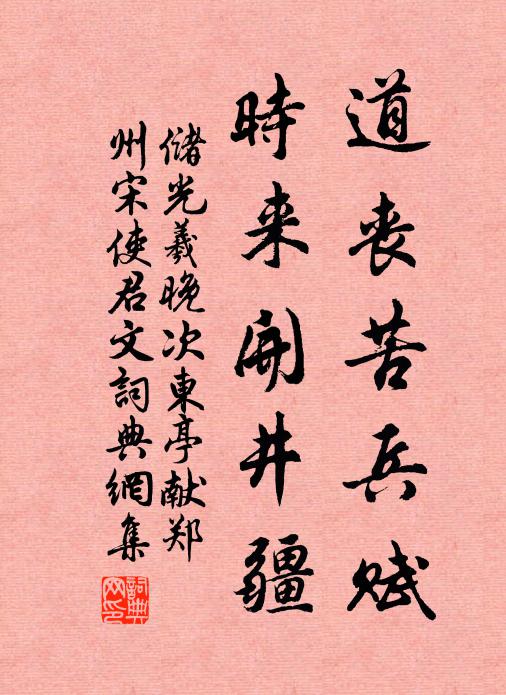 道丧苦兵赋
時来開井疆
儲光羲晚次東亭献郑
州宋使君文詞典網集